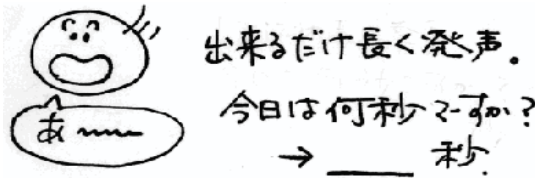 出来るだけ長く発声。
今日は何秒ですか?
→ ____ 秒.
あ〜〜